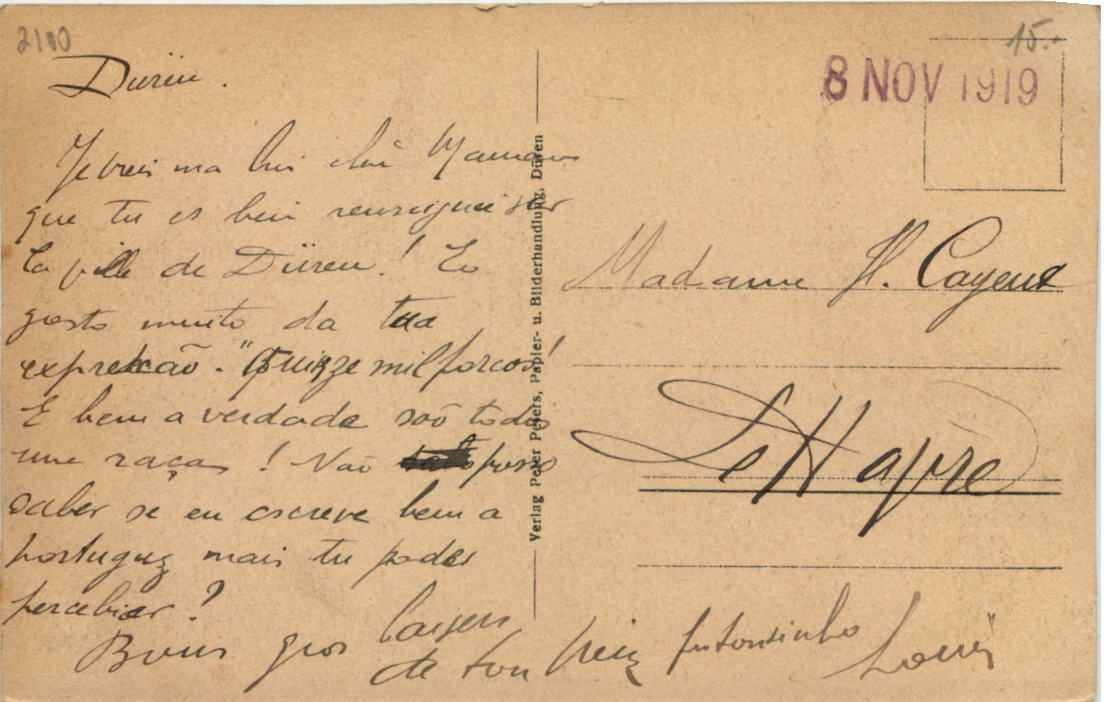 2100
15.-
8 NOV 1919
Düren.
Je vois ma bien chè Maman
que tu es bien renseignée sur
la ville de Düren! Eo
gosto muito da tua
expressão. "Quinze mil porcos!
E bem a verdade são todos
une raças! Não posso
saber se eu escreve bem a
portuguez mais tu podes
perceber?
Bons gros baisers
de ton
Louis
Madame H. Cayeux
Le Havre
Verlag Peter Peters, Papier- u. Bilderhandlung, Düren